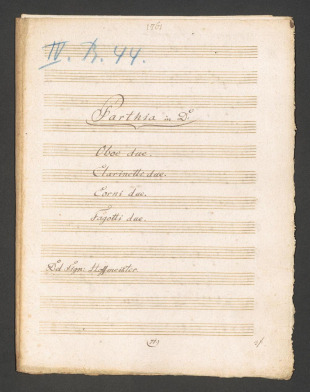 1761
IV. B. 44.
Parthia in D.
Oboe due.
Clarinetti due.
Corni due.
Fagotti due.
Del Sign: Hoffmeister